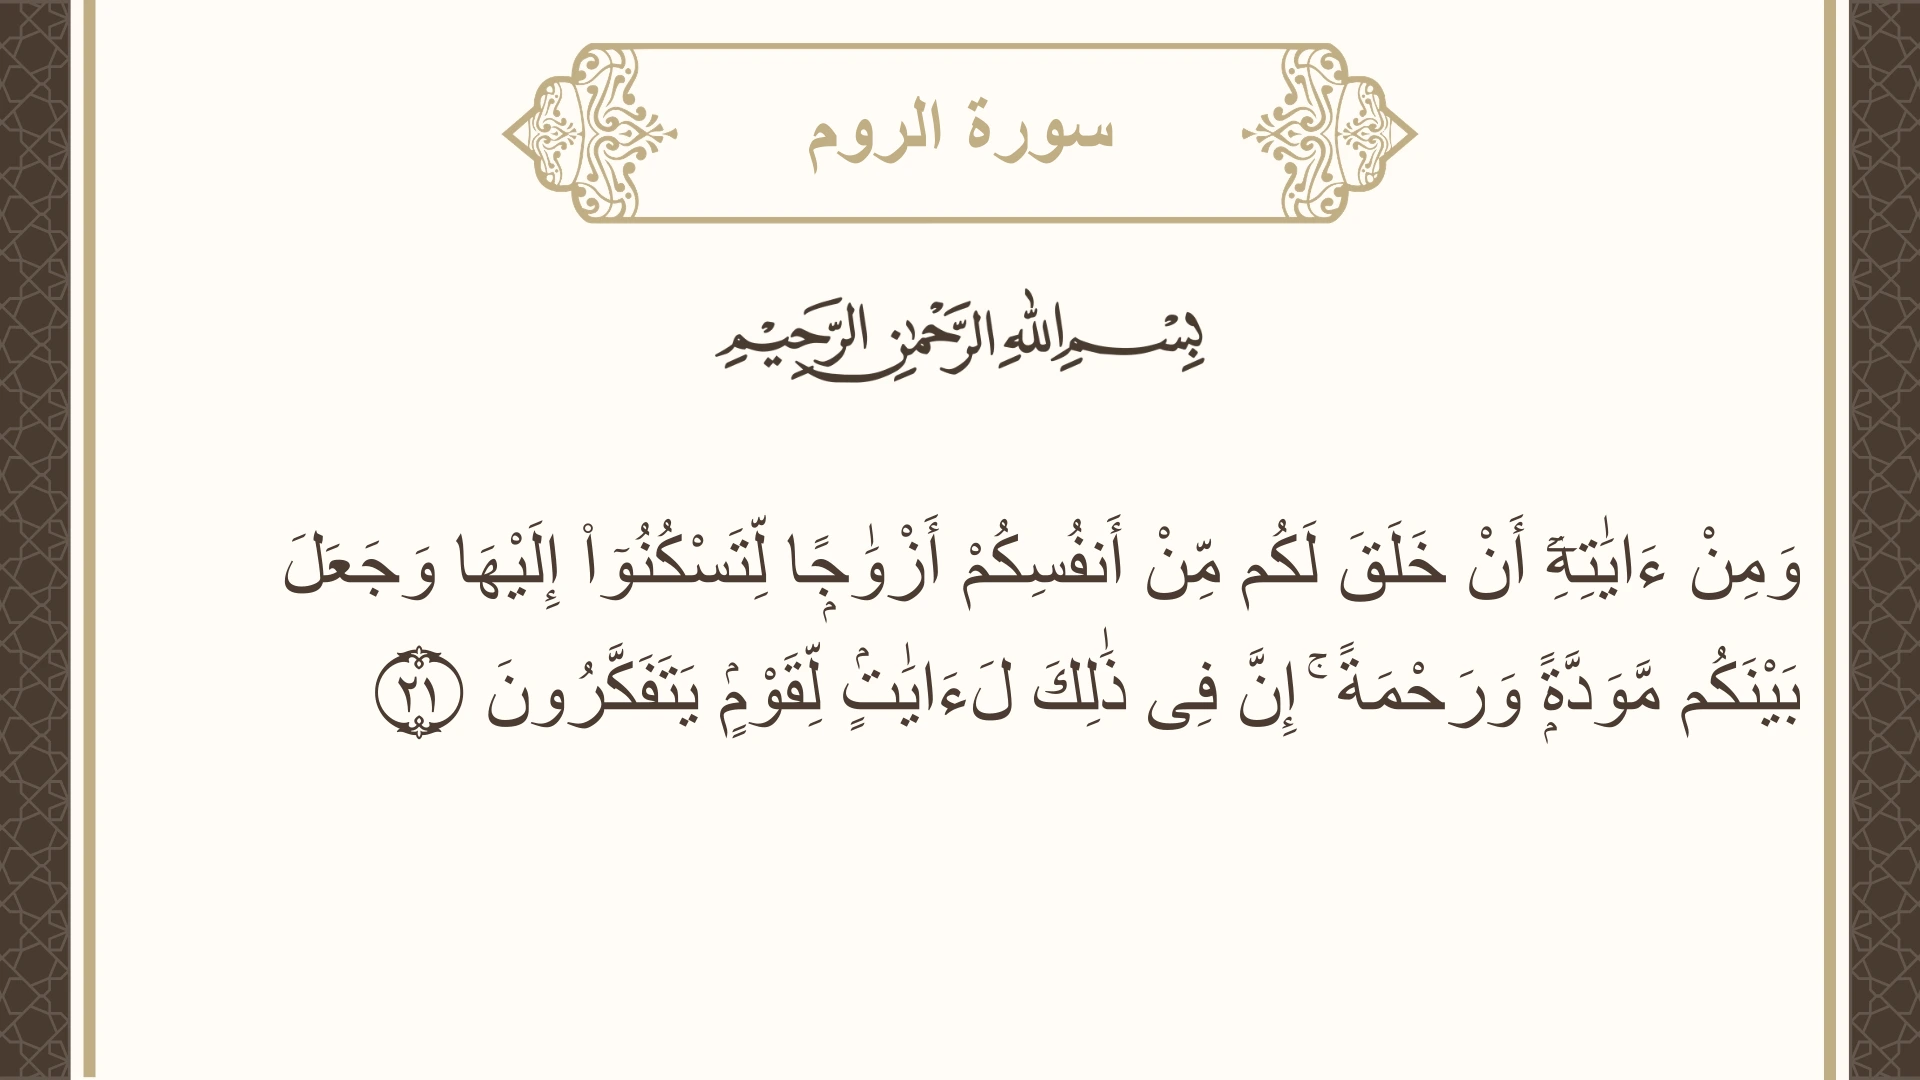 سورة الروم
بِسْمِ اللهِ الرَّحْمٰنِ الرَّحِيْمِ
وَمِنْ ءَايَٰتِهِۦٓ أَنْ خَلَقَ لَكُم مِّنْ أَنفُسِكُمْ أَزْوَٰجًۭا لِّتَسْكُنُوٓا۟ إِلَيْهَا وَجَعَلَ
بَيْنَكُم مَّوَدَّةًۭ وَرَحْمَةً ۚ إِنَّ فِى ذَٰلِكَ لَءَايَٰتٍۢ لِّقَوْمٍۢ يَتَفَكَّرُونَ ٢١